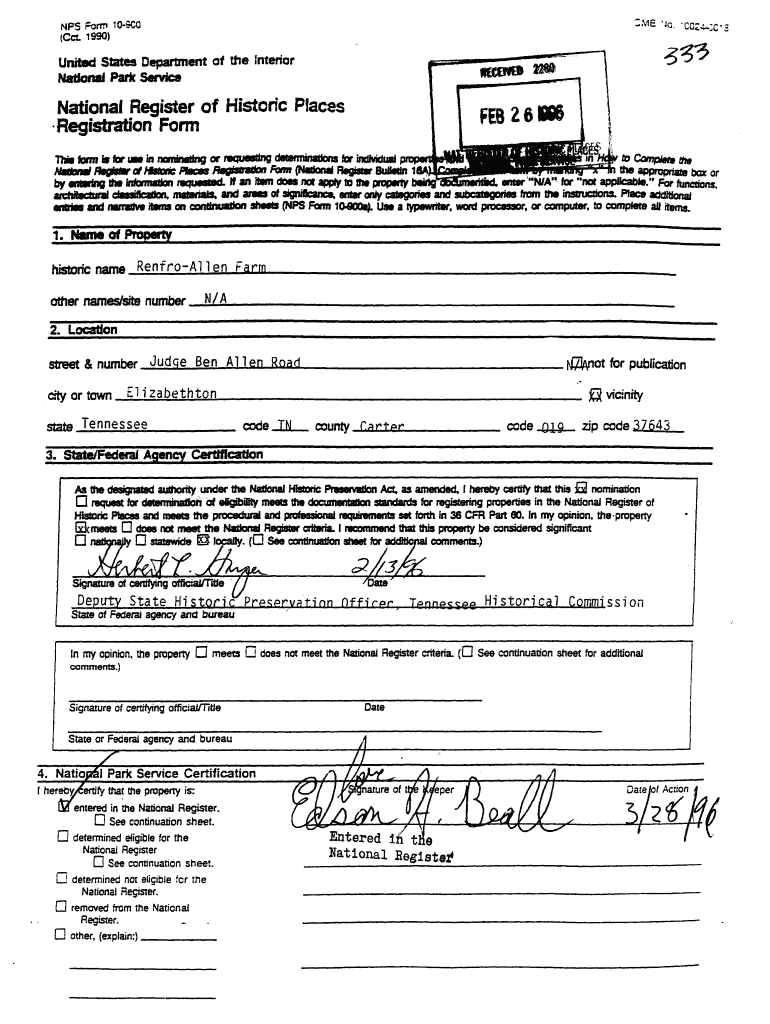 NPS Form 10-900
(Oct. 1990)
OMB No. 10024-0018
333
United States Department of the Interior
National Park Service
RECEIVED 2280
FEB 26 1996
National Register of Historic Places
Registration Form
NAT. REGISTER OF HISTORIC PLACES
This form is for use in nominating or requesting determinations for individual properties and in How to Complete the
National Register of Historic Places Registration Form (National Register Bulletin 16A). by marking "x" in the appropriate box or
by entering the information requested. If an item does not apply to the property being documented, enter "N/A" for "not applicable." For functions,
architectural classification, materials, and areas of significance, enter only categories and subcategories from the instructions. Place additional
entries and narrative items on continuation sheets (NPS Form 10-900a). Use a typewriter, word processor, or computer, to complete all items.
1. Name of Property
historic name Renfro-Allen Farm
other names/site number N/A
2. Location
street & number Judge Ben Allen Road N/A not for publication
city or town Elizabethton XX vicinity
state Tennessee code TN county Carter code 019 zip code 37643
3. State/Federal Agency Certification
As the designated authority under the National Historic Preservation Act, as amended, I hereby certify that this XX nomination
☐ request for determination of eligibility meets the documentation standards for registering properties in the National Register of
Historic Places and meets the procedural and professional requirements set forth in 36 CFR Part 60. In my opinion, the property
XX meets ☐ does not meet the National Register criteria. I recommend that this property be considered significant
☐ nationally ☐ statewide XX locally. (☐ See continuation sheet for additional comments.)
Herbert L. Harper 2/13/96
Signature of certifying official/Title Date
Deputy State Historic Preservation Officer, Tennessee Historical Commission
State of Federal agency and bureau
In my opinion, the property ☐ meets ☐ does not meet the National Register criteria. (☐ See continuation sheet for additional
comments.)
Signature of certifying official/Title Date
State or Federal agency and bureau
4. National Park Service Certification
I hereby certify that the property is:
☑ entered in the National Register.
☐ See continuation sheet.
☐ determined eligible for the
National Register
☐ See continuation sheet.
☐ determined not eligible for the
National Register.
☐ removed from the National
Register.
☐ other, (explain:)
for Signature of the Keeper Date of Action
Edson H. Beall 3/28/96
Entered in the
National Register